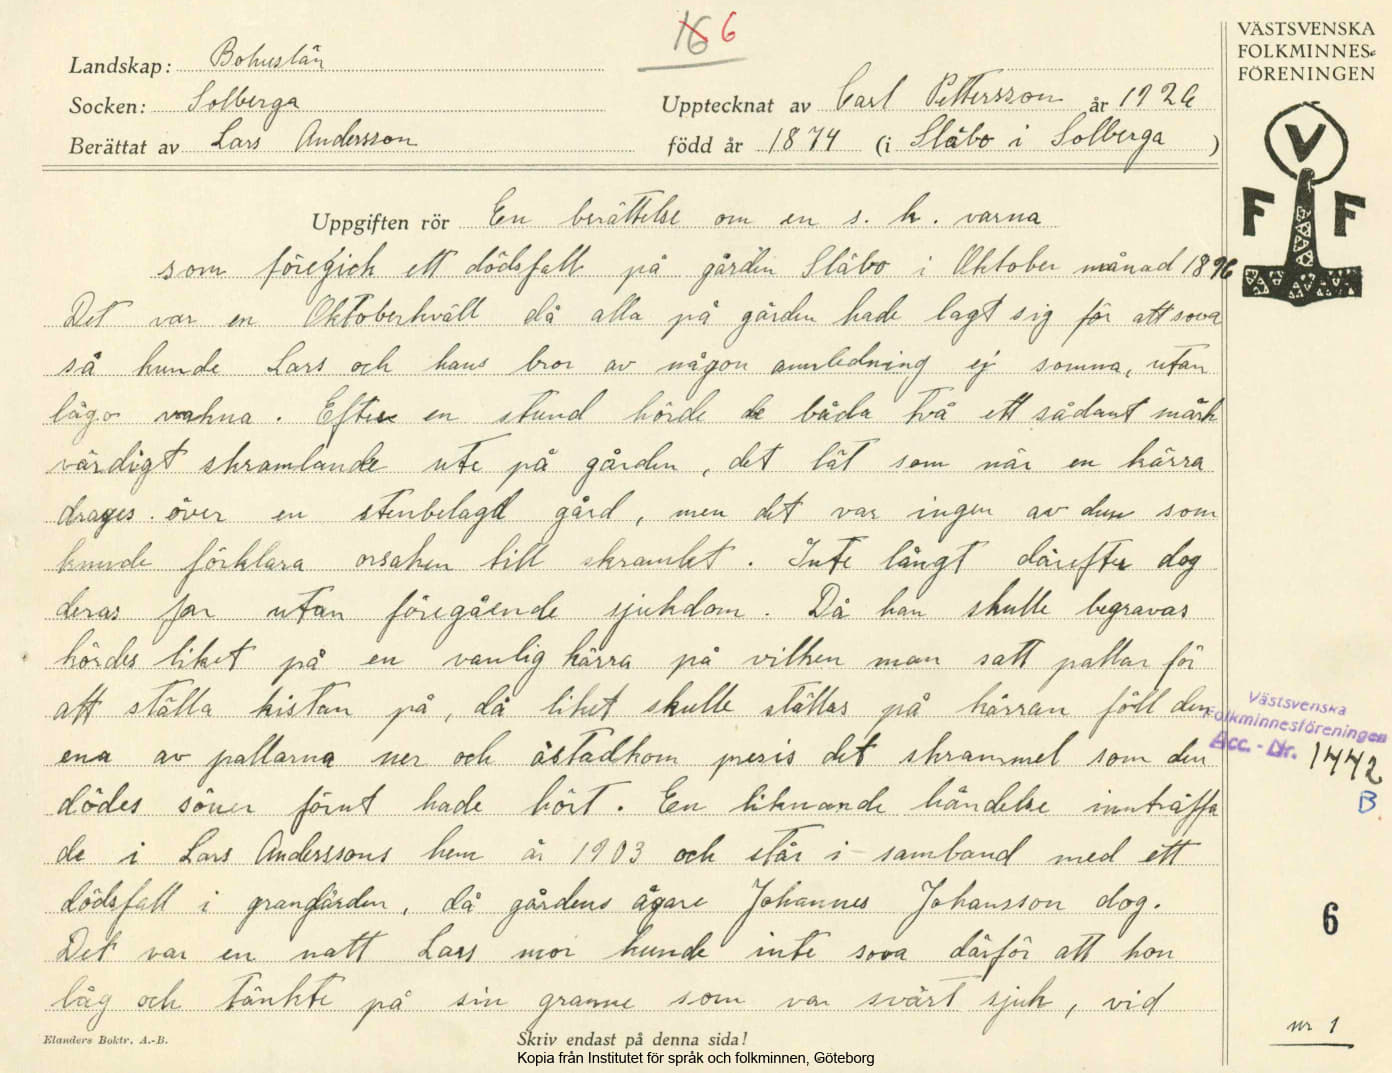 16 6
VÄSTSVENSKA
FOLKMINNES-
FÖRENINGEN
Landskap: Bohuslän
Socken: Solberga
Upptecknat av Carl Pettersson år 1926
Berättat av Lars Andersson
född år 1874 (i Släbo i Solberga )
V
F F
Uppgiften rör En berättelse om en s. k. varna
som föregich ett dödsfall på gården Släbo i Oktober månad 1896
Det var en Oktoberkväll då alla på gården hade lagt sig för att sova
så kunde Lars och hans bror av någon annledning ej somna, utan
lågo vakna. Efter en stund hörde de båda två ett sådant märk
värdigt skramlande ute på gården, det lät som när en kärra
drages över en stenbelagd gård, men det var ingen av dem som
kunde förklara orsaken till skramlet. Inte långt därefter dog
deras far utan föregående sjukdom. Då han skulle begravas
kördes liket på en vanlig kärra på vilken man satt pallar för
att ställa kistan på, då liket skulle ställas på kärran föll den
ena av pallarna ner och åstadkom presis det skrammel som den
dödes söner förut hade hört. En liknande händelse innträffa
de i Lars Anderssons hem år 1903 och står i samband med ett
dödsfall i grangården, då gårdens ägare Johannes Johansson dog.
Det var en natt Lars mor kunde inte sova därför att hon
låg och tänkte på sin granne som var svårt sjuk, vid
Västsvenska
Folkminnesföreningen
Acc. - Nr. 1442
B.
6
nr 1
Elanders Boktr. A.-B.
Skriv endast på denna sida!
Kopia från Institutet för språk och folkminnen, Göteborg